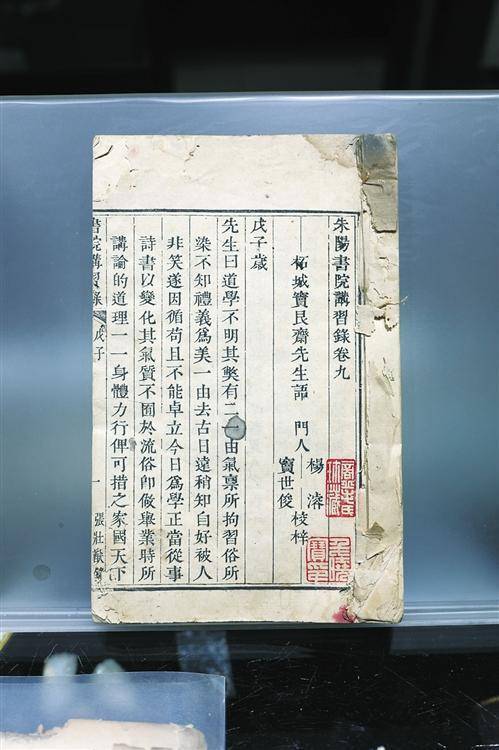 朱陽書院講習錄卷九
柘城竇艮齋先生語 門人 楊溶 竇世俊 校梓
戊子歲
先生曰道學不明其獘有二一由氣稟所拘習俗所
染不知禮義爲美一由去古日遠稍知自好被人
非笑遂因循苟且不能卓立今日爲學正當從事
詩書以變化其氣質不囿於流俗即做舉業時所
講論的道理一一身體力行俾可措之家國天下
書院講習錄 戊子 一 張壯猷